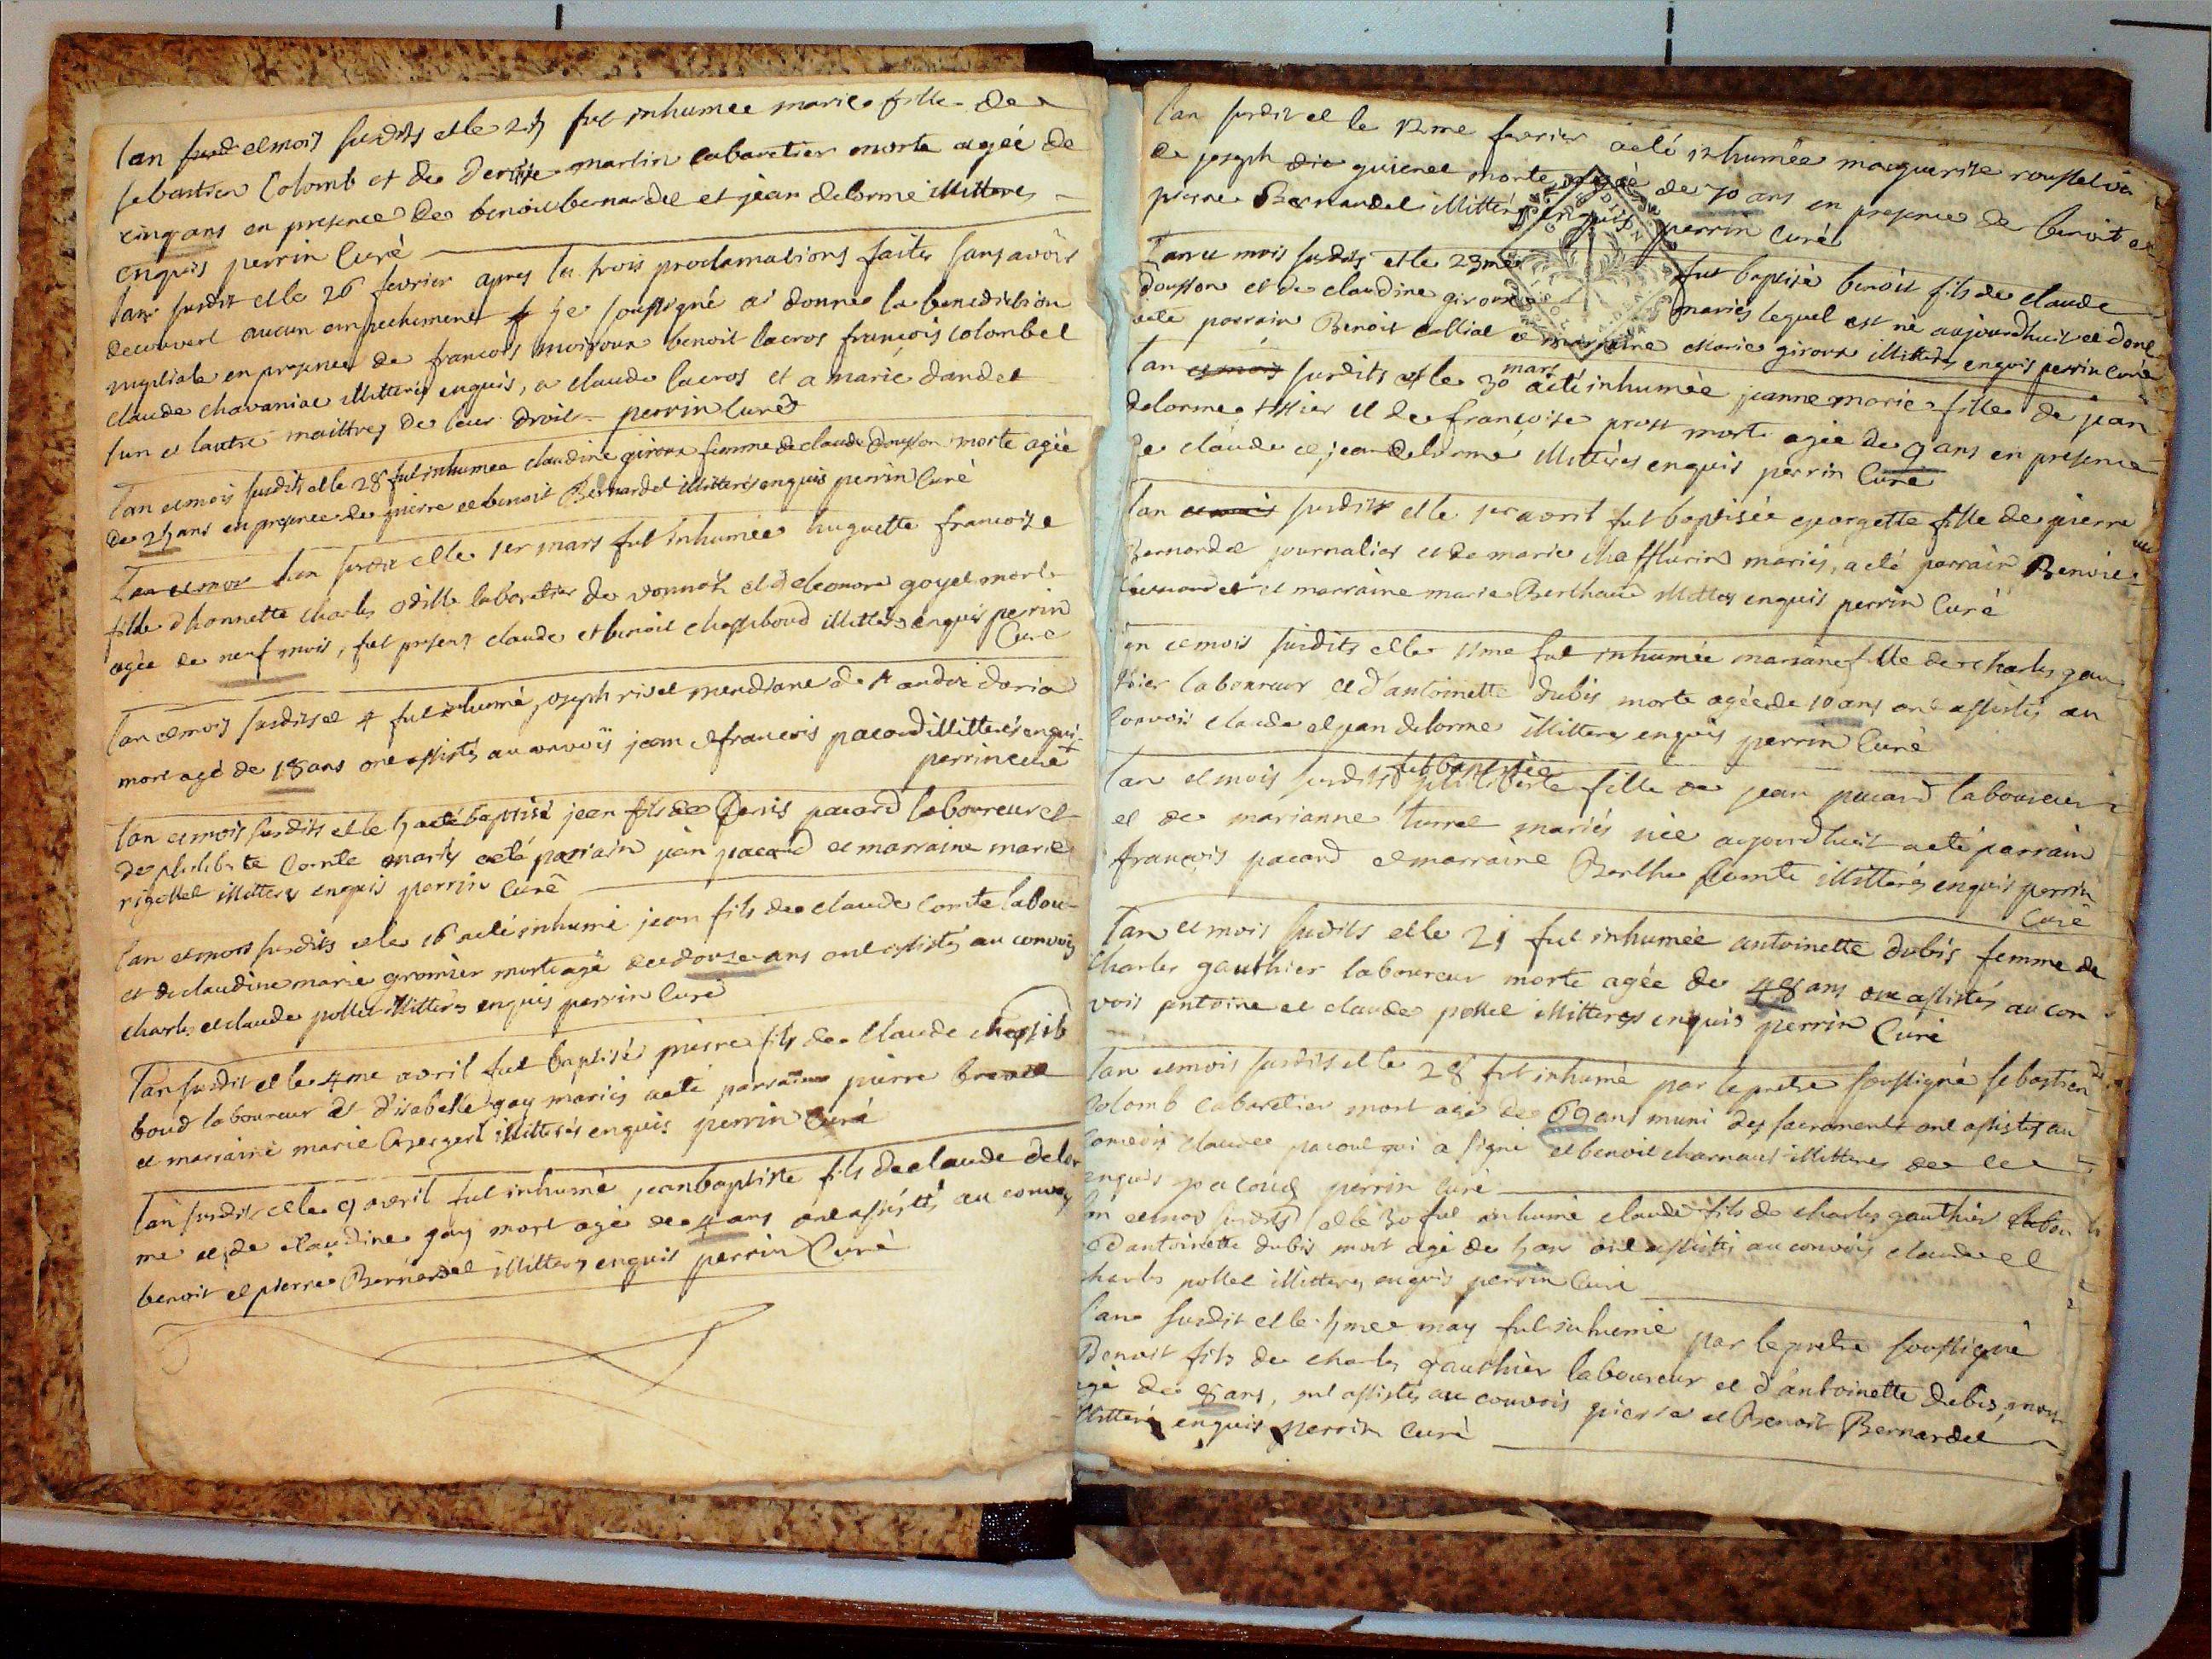 lan elmois susdits et le 25 fut inhumee marie fille de
sebastien Colomb et de martin cabaretier morte agée de
cinq ans en presence de benoit bernardel et jean delorme illitteres
enquis perrin Curé
lan susdit et le 26 fevrier apres les trois proclamations faites sans avoir
decouvert aucun empechement je soussigné ai donné la benediction
nuptiale en presence de francois moiroux benoit lacros françois colombel
claude chavaniac illitterés enquis, a claude lacros et a marie dandel
lun et lautre maittres de leur droit perrin curé
lan et mois susdits et le 28 fut inhumee claudine giroux femme de claude doufson morte agée
de 25 ans en presence de pierre et benoit Bernardel illitterés enquis perrin Curé
lan et mois lan susdit et le 1er mars fut inhumée huguette francoise
fille dhonnette charles odille cabaretier de vonnas et deleonore goyel morte
agée de neuf mois, fut presens claude et benoit chassiboud illitterés enquis perrin
Curé
lan et mois susdits et 4 fut inhumé joseph risel mendiant de st andré
mort agé de 18 ans ont assistés au convois jean et francois pacoud illitterés enquis
perrin curé
lan et mois susdits et le 5 a eté baptisé jean fils de Denis pacard laboureur et
de philiberte Comte mariés a eté parrain jean pacard et marraine marie
rigollel illitteres enquis perrin Curé
lan et mois susdits et le 16 a eté inhumé jean fils de claude Comte labou
et de claudine marie gromier mort agé de douze ans ont assistés au convois
charles et claude pollel illitterés enquis perrin Curé
lan susdit et le 4me avril fut baptisé pierre fils de claude chassib
boud laboureur et d'isabelle gay mariés a eté parrain pierre
et marraine marie illitterés enquis perrin Curé
lan susdit et le 9 avril fut inhumé jean baptiste fils de claude delor
me et de claudine gay mort agé de 4 ans ont assistés au convoy
benoit et pierre Bernardel illitterés enquis perrin Curé
lan susdit et le 12me fevrier a eté inhumée marguerite roussel
de joseph guicnel morte agée de 70 ans en presence de benoit et
pierre Bernardel illitterés enquis perrin Curé
lan et mois susdits et le 23me fut baptisé benoit fils de claude
doufson et de claudine giroux mariés lequel est né aujourdhuit et dont
a eté parrain Benoit et marraine marie giroux illitterés enquis perrin Curé
lan et mois susdits et le 30 mars a eté inhumée jeanne marie fille de jean
delorme tissier et de françoise prost morte agée de 9 ans en presence
de claude et jean delorme illitterés enquis perrin Curé
lan et mois susdits et le 1er avril fut baptisée georgette fille de pierre
Bernardel journalier et de marie chaffturin mariés, a eté parrain Benoit
bernardel et marraine marie Berthaud illitterés enquis perrin Curé
lan et mois susdits et le 11me fut inhumée mariane fille de charles gau
thier laboureur et d'antoinette dubis morte agée de 10 ans ont assistés au
convois claude et jean delorme illitteres enquis perrin Curé
lan et mois susdits fut baptisée philiberte fille de jean pacard laboureur
et de marianne turrel mariés née aujourdhuit a eté parrain
françois pacard et marraine Berthe Comte illitterés enquis perrin
Curé
lan et mois susdits et le 21 fut inhumée antoinette dubis femme de
charles gauthier laboureur morte agée de 48 ans ont assistés au con
vois antoine et claude pollel illitterés enquis perrin Curé
lan et mois susdits et le 28 fut inhumé par le pretre soussigné sebastien
Colomb cabaretier mort agé de 69 ans muni des sacrements ont assistés au
convois claude pacoud qui a signé et benoit charnaud illitteres de ce
enquis pacoud perrin curé
lan et mois susdits et le 30 fut inhumé claude fils de charles gauthier labou
et d'antoinette dubis mort agé de 5 ans ont assistés au convois claude et
charles pollel illitteres enquis perrin Curé
lan susdit et le 5me may fut inhumé par le pretre soussigné
Benoit fils de charles gauthier laboureur et d'antoinette dubis, mort
agé de 8 ans, ont assistés au convois pierre et Benoit Bernardel
illitterés enquis perrin Curé